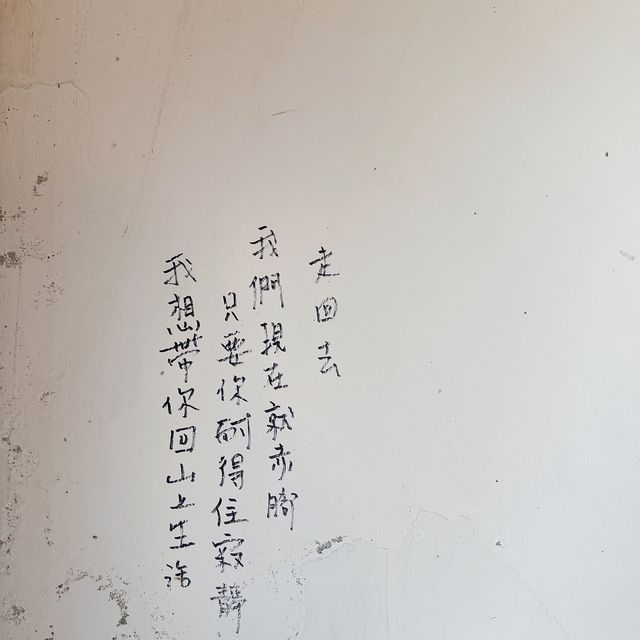 我想帶你回山上生活
只要你耐得住寂靜
我們現在就赤腳
走回去